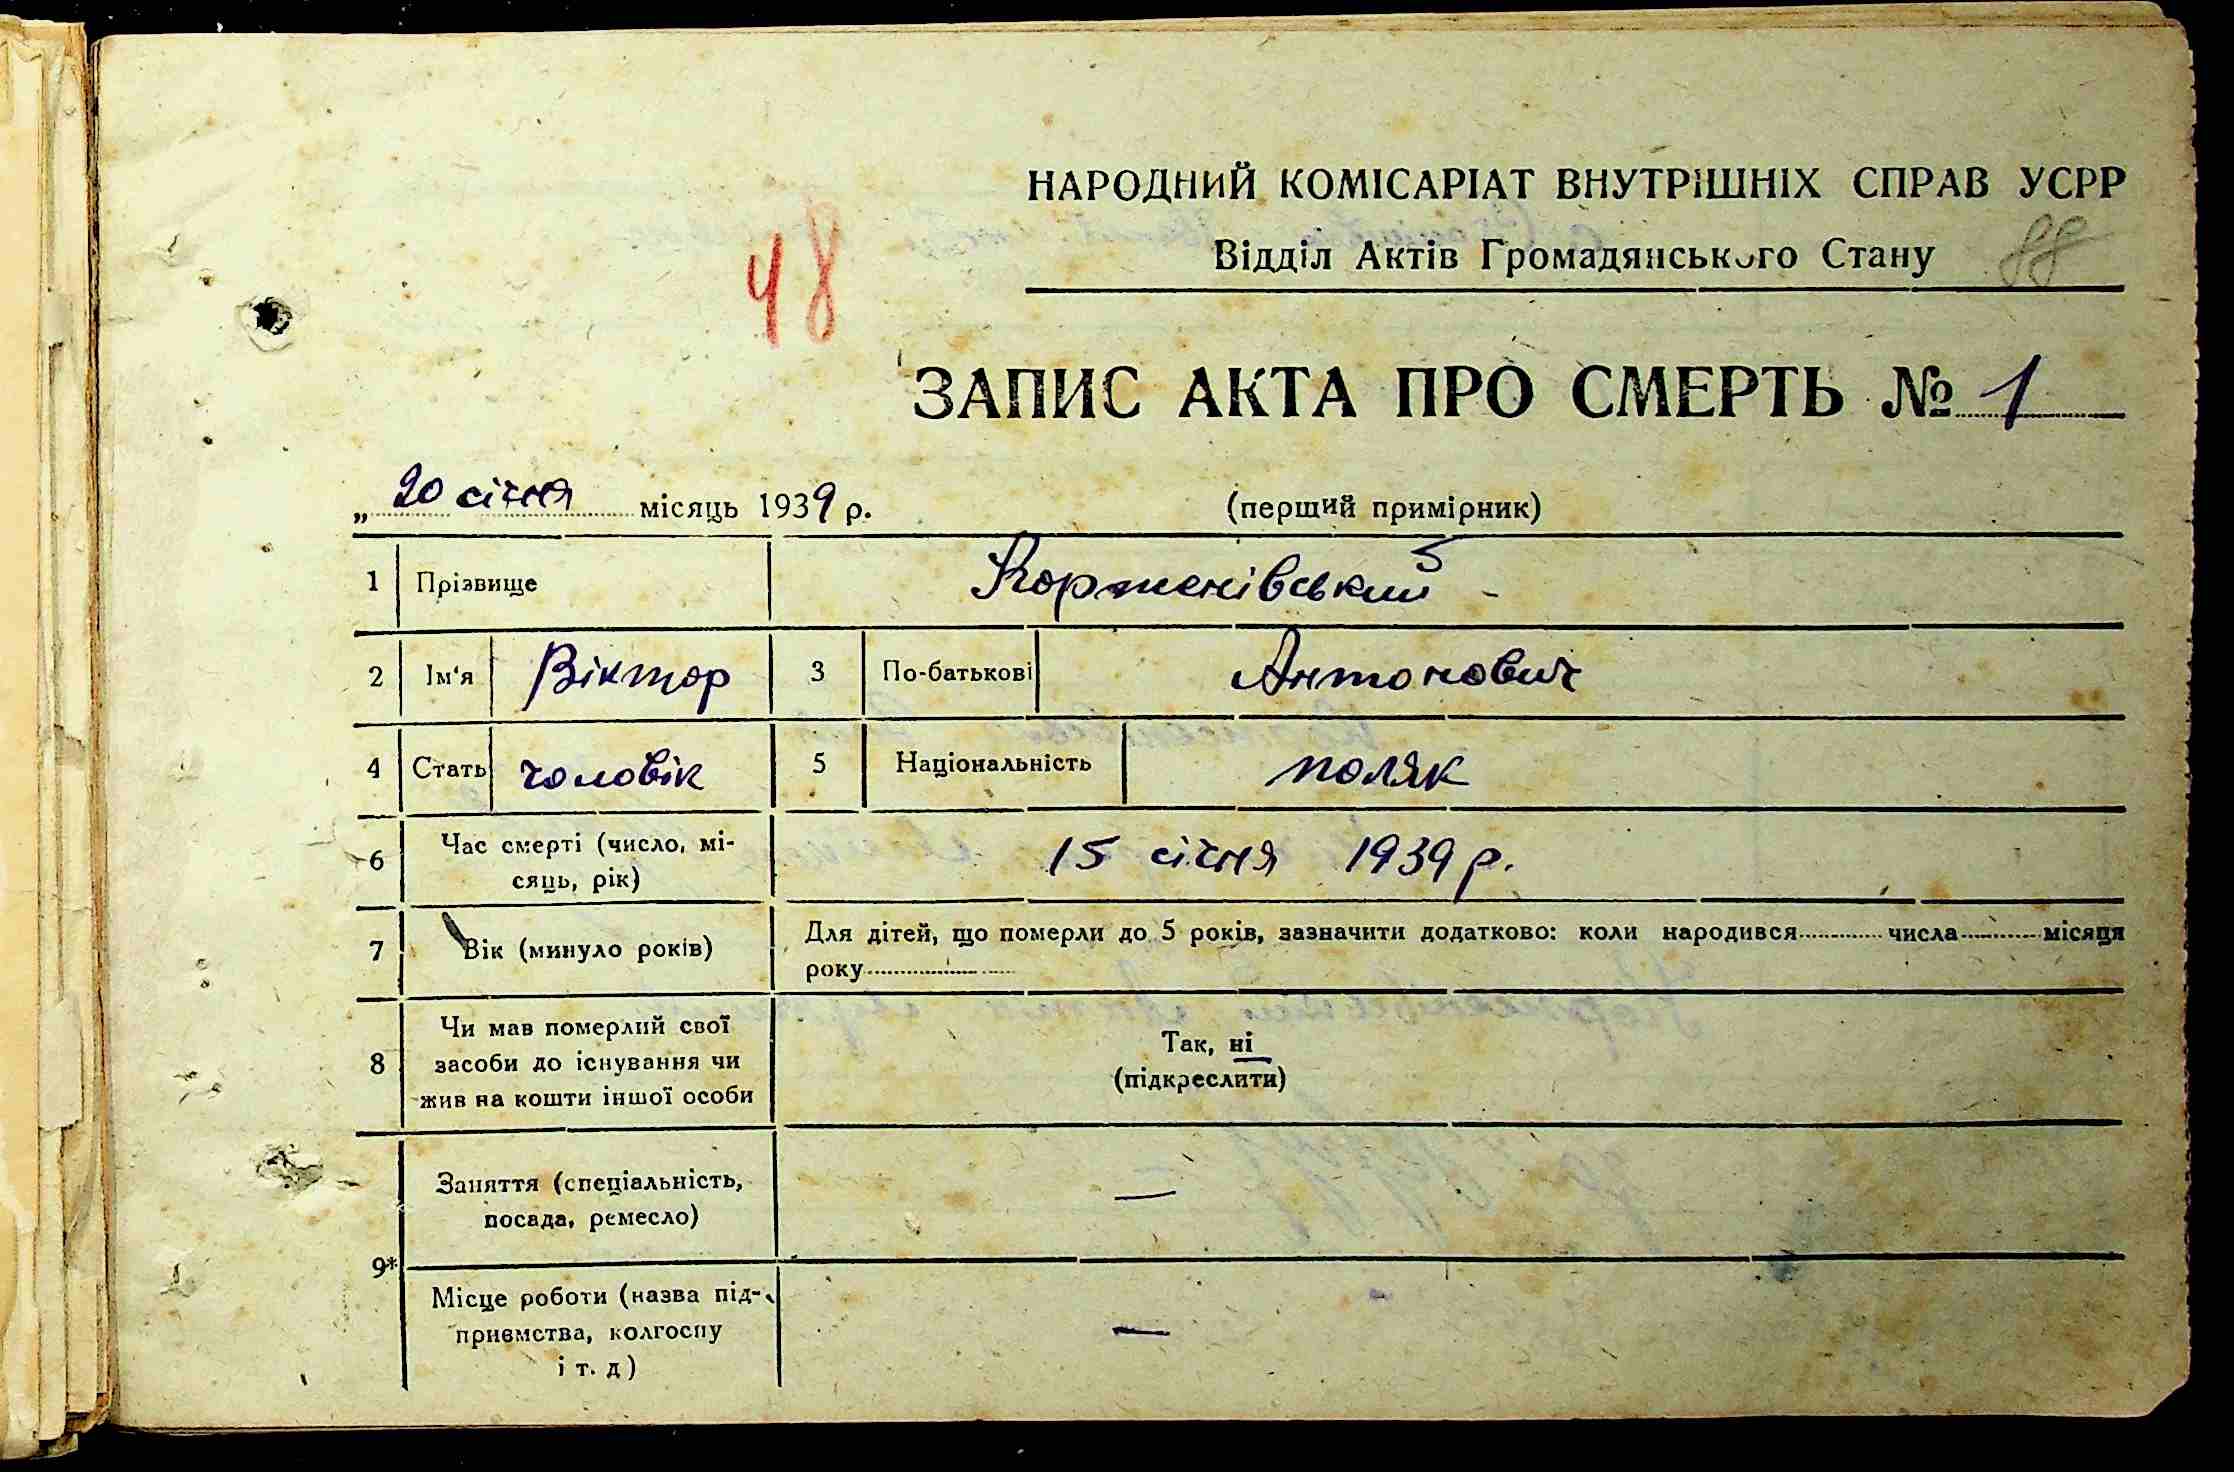 НАРОДНИЙ КОМІСАРІАТ ВНУТРІШНІХ СПРАВ УСРР
48
Відділ Актів Громадянського Стану
88
ЗАПИС АКТА ПРО СМЕРТЬ № 1
„ 20 січня місяць 1939 р. (перший примірник)
1 Прізвище Корженівський
2 Ім'я Віктор 3 По-батькові Антонович
4 Стать чоловік 5 Національність поляк
6 Час смерті (число, мі-
сяць, рік) 15 січня 1939 р.
7 Вік (минуло років) Для дітей, що померли до 5 років, зазначити додатково: коли народився числа місяця
року
8 Чи мав померлий свої
засоби до існування чи
жив на кошти іншої особи
Так, ні
(підкреслити)
9* Заняття (спеціальність,
посада, ремесло) —
Місце роботи (назва під-
приємства, колгоспу
і т. д) —